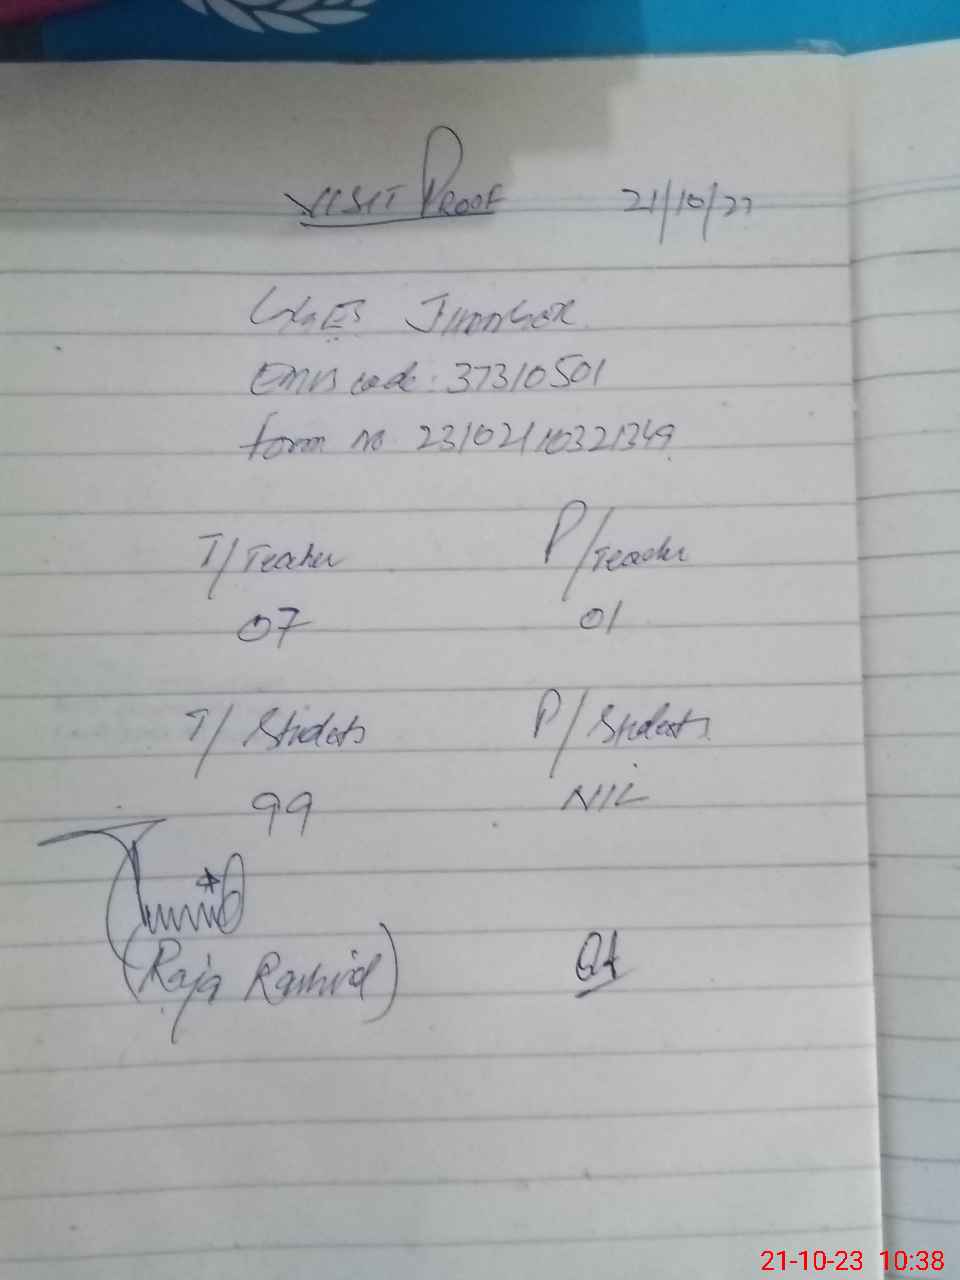 VISIT PROOF 21/10/23
GGES
EMIS code: 37310501
form no 23102110321349
T/Teacher P/Teacher
07 01
T/Students P/Students
99 NIL
(Raja Rashid)
21-10-23 10:38